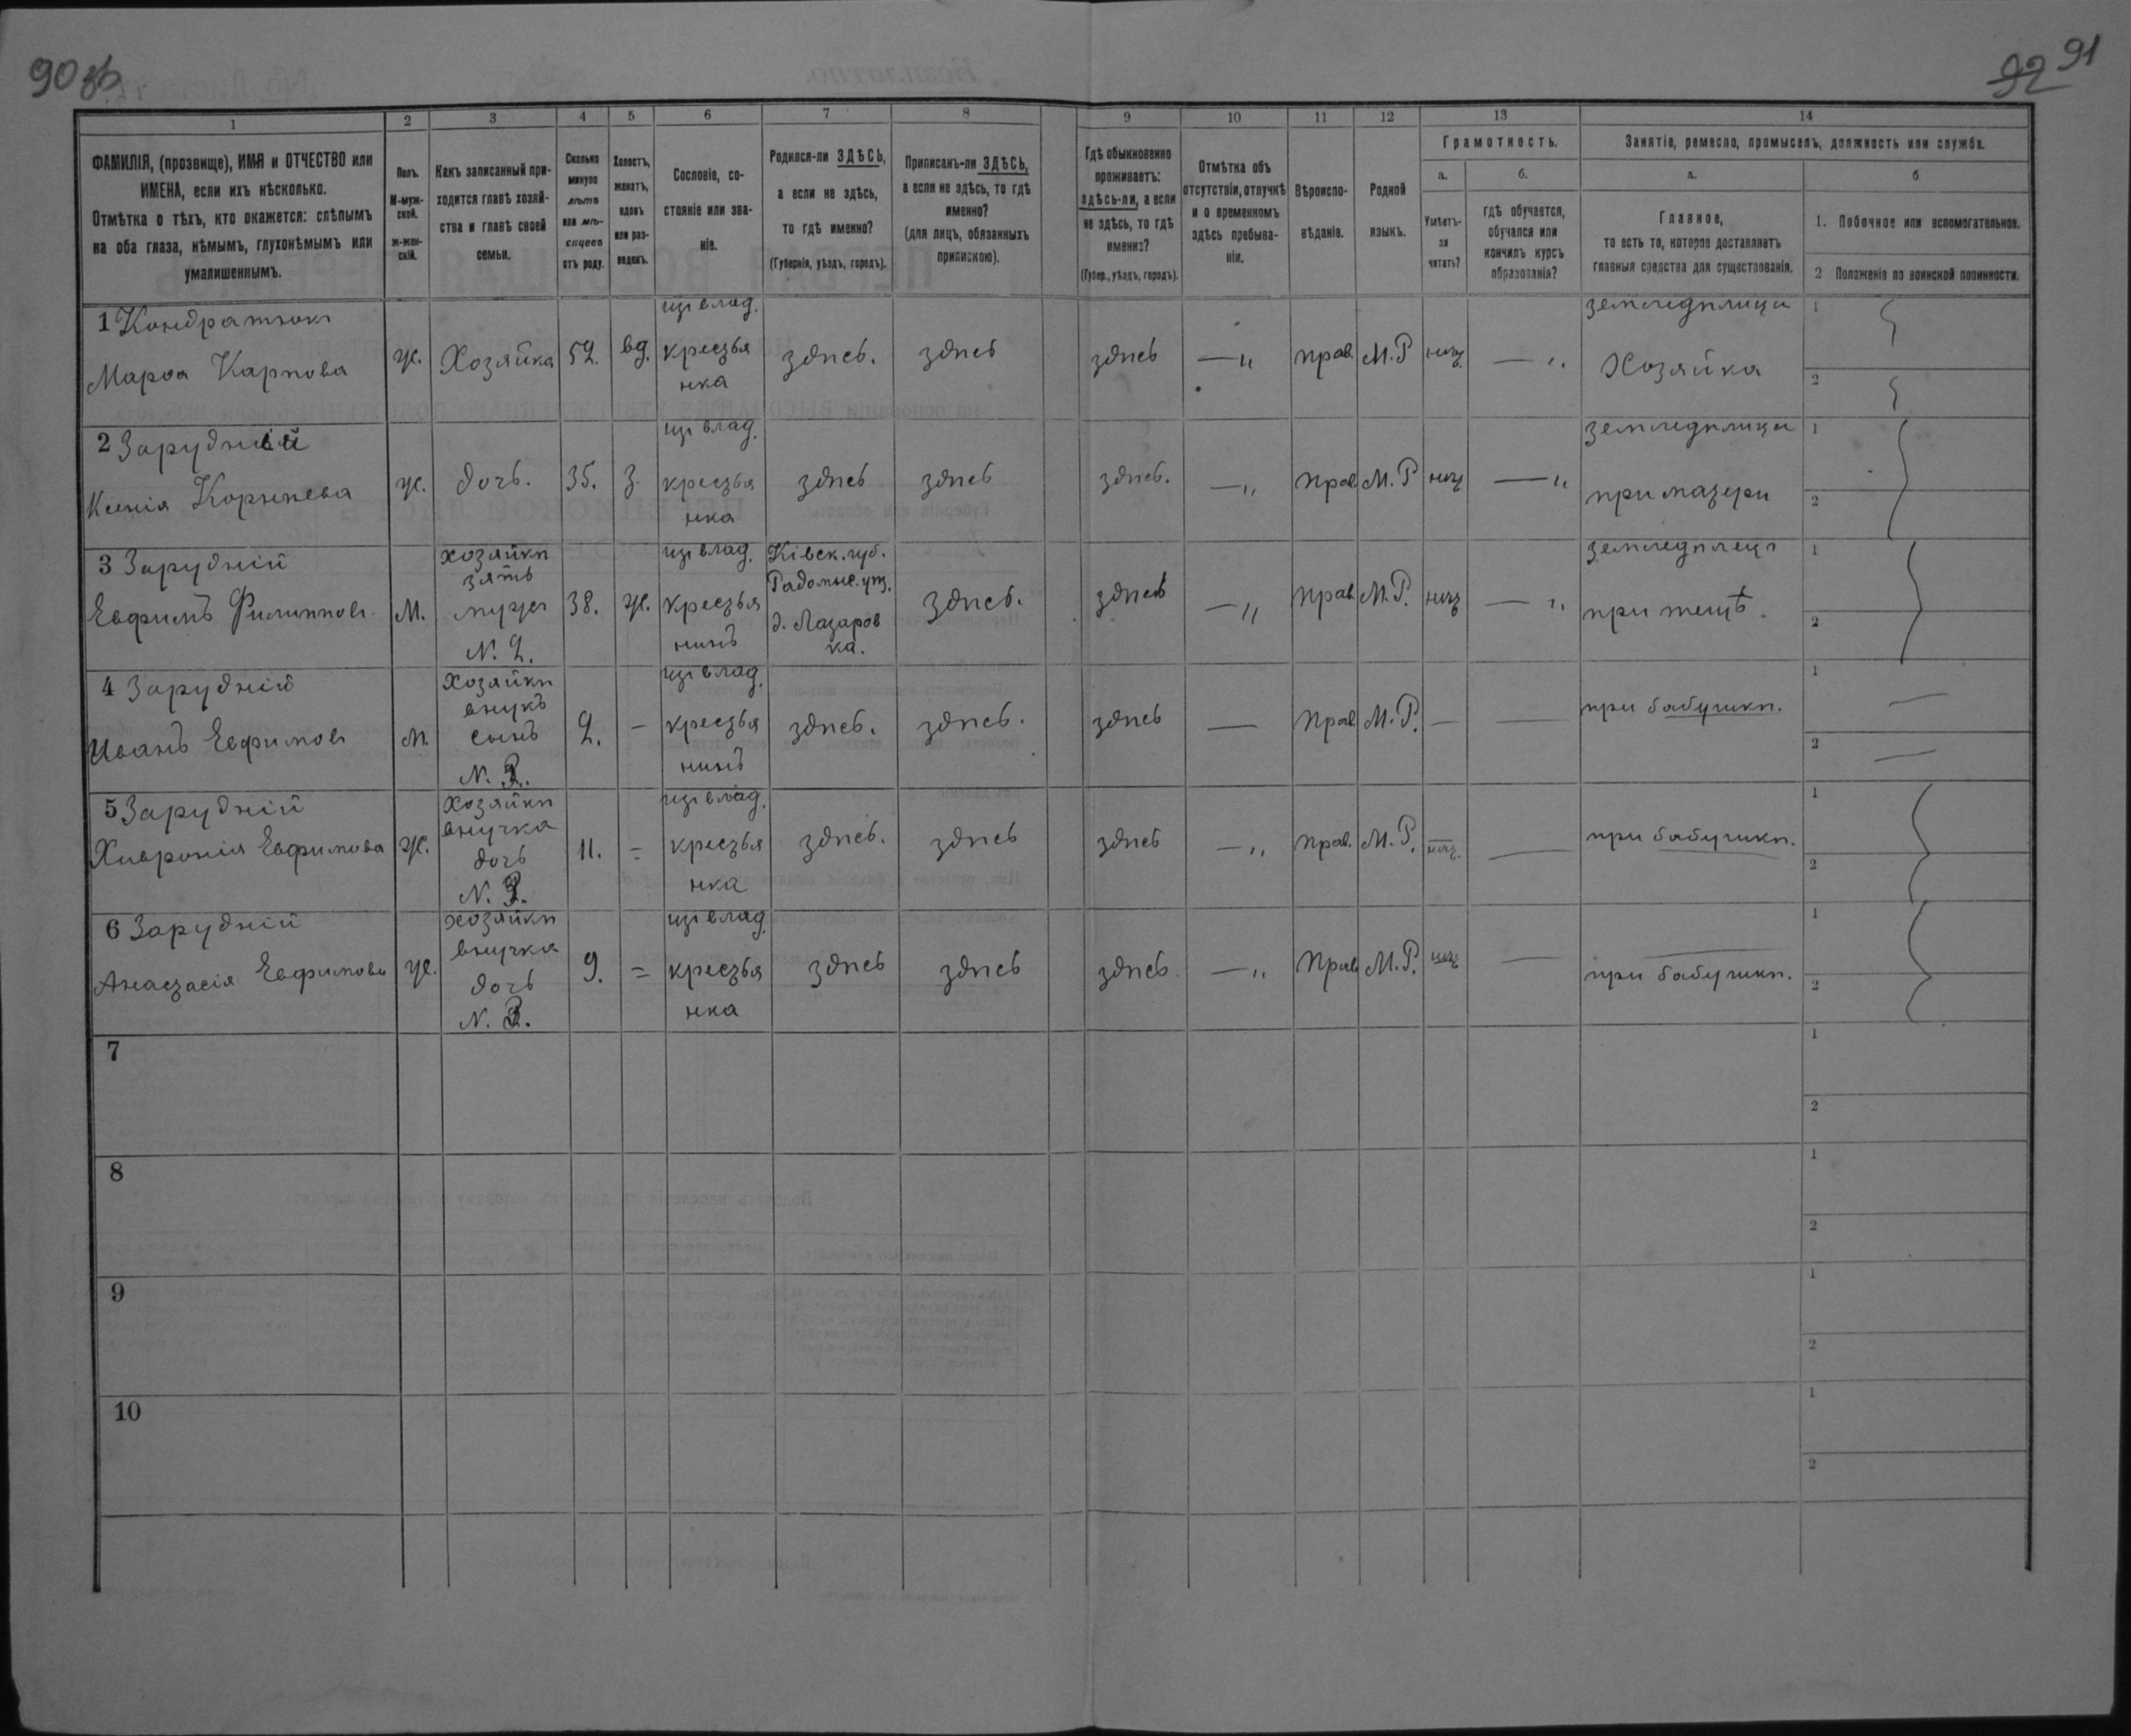 90 об
92 91
1 2 3 4 5 6 7 8 9 10 11 12 13 14
ФАМИЛІЯ, (прозвище), ИМЯ и ОТЧЕСТВО или
ИМЕНА, если ихъ нѣсколько.
Отмѣтка о тѣхъ, кто окажется: слѣпымъ
на оба глаза, нѣмымъ, глухонѣмымъ или
умалишеннымъ.
Полъ.
М-муж-
ской.
ж-жен-
скій.
Какъ записанный при-
ходится главѣ хозяй-
ства и главѣ своей
семьи.
Сколько
минуло
лѣтъ
или мѣ-
сяцевъ
отъ роду.
Холостъ,
женатъ,
вдовъ
или раз-
веденъ.
Сословіе, со-
стояніе или зва-
ніе.
Родился-ли ЗДѢСЬ,
а если не здѣсь,
то гдѣ именно?
(Губернія, уѣздъ, городъ).
Приписанъ-ли ЗДѢСЬ,
а если не здѣсь, то гдѣ
именно?
(для лицъ, обязанныхъ
припискою).
Гдѣ обыкновенно
проживаетъ:
здѣсь-ли, а если
не здѣсь, то гдѣ
именно?
(Губер., уѣздъ, городъ).
Отмѣтка объ
отсутствіи, отлучкѣ
и о временномъ
здѣсь пребыва-
ніи.
Вѣроиспо-
вѣданіе.
Родной
языкъ.
Грамотность.
а.
Умѣетъ-
ли
читать?
б.
гдѣ обучается,
обучался или
кончилъ курсъ
образованія?
Занятіе, ремесло, промыселъ, должность или служба.
а.
Главное,
то есть то, которое доставляетъ
главныя средства для существованія.
б
1. Побочное или вспомогательное.
2 Положеніе по воинской повинности.
1 Кондратюкъ
Марѳа Карпова
ж. Хозяйка 52. вд.
изъ влад.
крестья
нка
здѣсь. здѣсь здѣсь — „ прав. М.Р — „
земледѣлица
Хозяйка
1
2
2 Зарудній
Ксенія Корнѣева
ж. дочь. 35. З.
изъ влад.
крестья
нка
здѣсь здѣсь здѣсь. — „ прав. М.Р — „
земледѣлица
при матери
1
2
3 Зарудній
Евфимъ Филипповъ
М.
хозяйки
зять
мужъ
N. 2.
38. ж.
изъ влад.
крестья
нинъ
Кіевск. губ.
Радомыс. уѣз.
д. Лазаров
ка.
здѣсь. здѣсь — „ прав. М.Р. — „
земледѣлецъ
при тещѣ.
1
2
4 Зарудній
Иванъ Евфимовъ
М.
хозяйки
внукъ
сынъ
N. 3.
2. —
изъ влад.
крестья
нинъ
здѣсь. здѣсь. здѣсь — прав М.Р. — —
при бабушкѣ.
1 —
2 —
5 Зарудній
Хивронія Евфимова
Ж.
хозяйки
внучка
дочь
N. 3.
11. =
изъ влад.
крестья
нка
здѣсь. здѣсь здѣсь — „ прав. М.Р. —
при бабушкѣ.
1
2
6 Зарудній
Анастасія Евфимова
ж.
хозяйки
внучка
дочь
N. 3.
9. =
изъ влад.
крестья
нка
здѣсь здѣсь здѣсь. — „ Прав М.Р. —
при бабушкѣ.
1
2
7 1
2
8 1
2
9 1
2
10 1
2